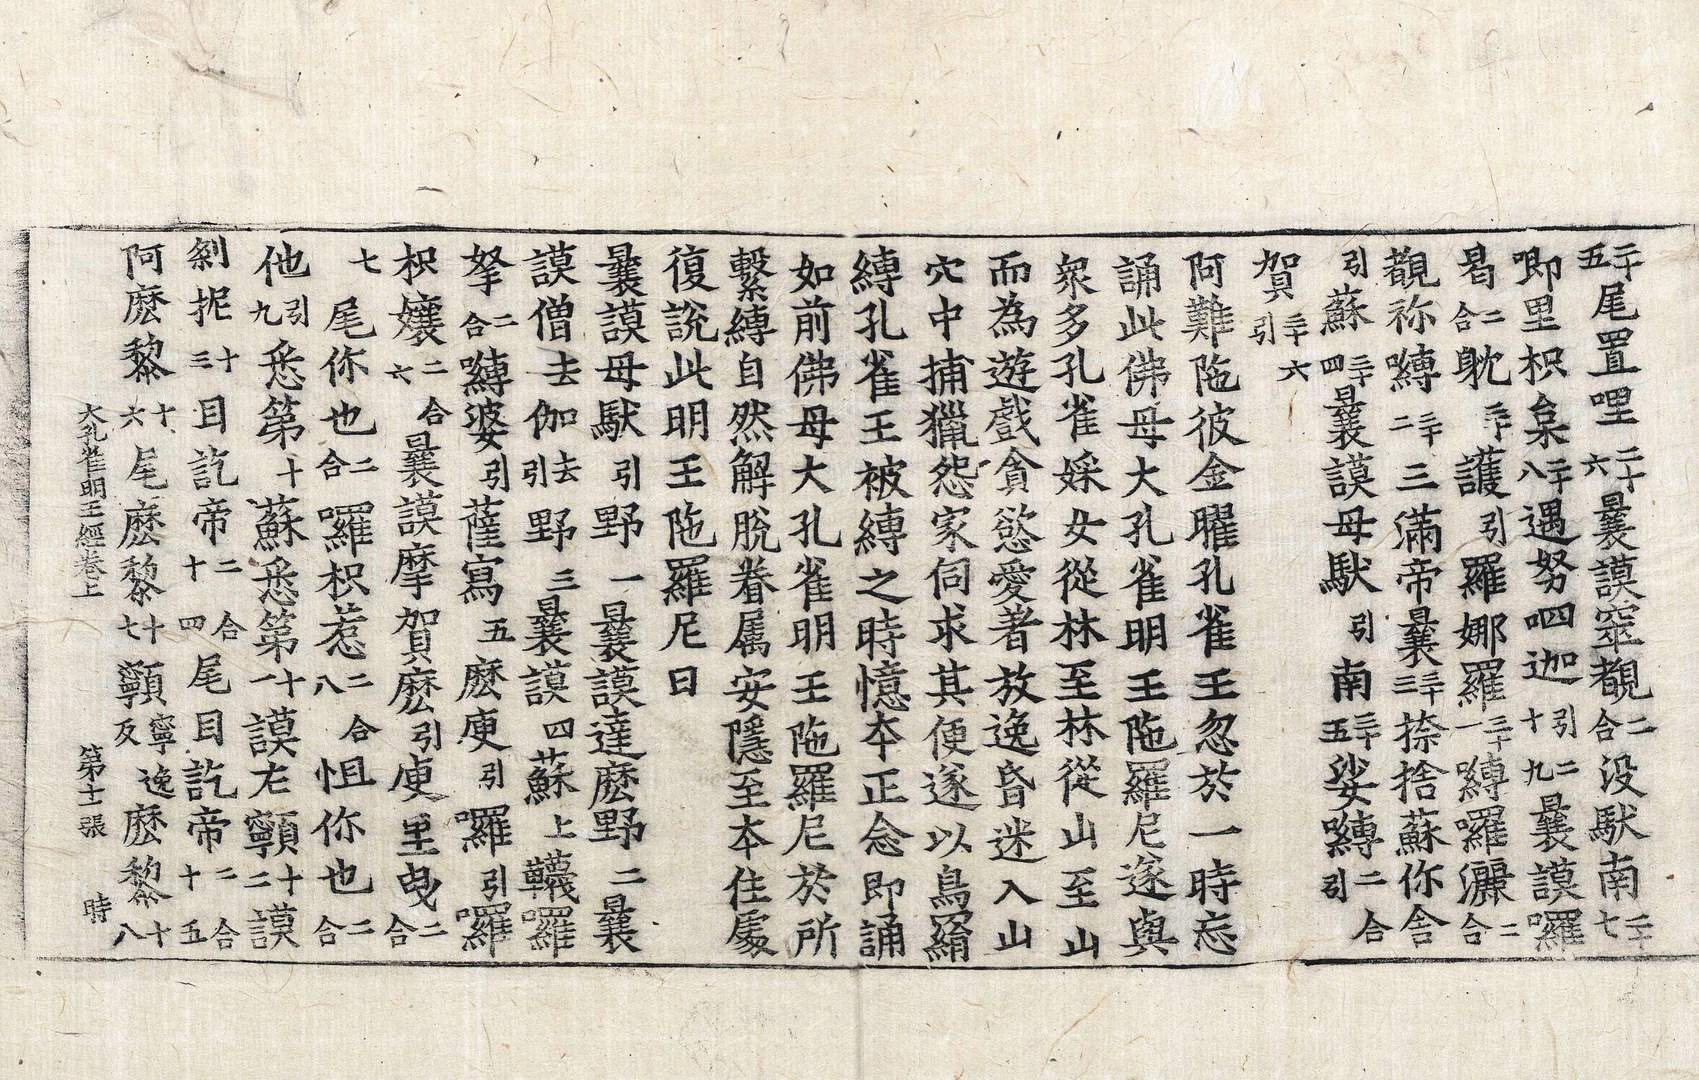 五二十尾置哩二十六曩謨窣覩二合没馱南二十七
唧里枳枲二十八遇努呬迦引十二九曩謨囉
曷二合躭三十護引羅娜羅三十一嚩囉灑二合
覩祢嚩三十二三滿帝曩三十三捺捨蘇你舍
引蘇三十四曩謨母馱引南三十五娑嚩二合引
賀引三十六
阿難陁彼金曜孔雀王忽於一時忘
誦此佛母大孔雀明王陁羅尼遂與
衆多孔雀婇女從林至林從山至山
而為遊戲貪慾愛著放逸昏迷入山
穴中捕獵怨家伺求其便遂以鳥羂
縛孔雀王被縛之時憶本正念即誦
如前佛母大孔雀明王陁羅尼於所
繫縛自然解脫眷属安隱至本住處
復說此明王陁羅尼曰
曩謨母馱引野一曩謨達麽野二曩
謨僧去伽去引野三曩謨四蘇上韈囉
拏二合嚩婆引薩寫五麽庾引囉引囉
枳孃二合六曩謨摩賀麽引庾里曳二合
七尾你也二合囉枳惹二合八怚你也二合
他引九悉第十蘇悉第十一謨左顐十二謨
剎抳十三目訖帝二合十四尾目訖帝二合十五
阿麽黎十六尾麽黎十七顐寧逸反麽黎十八
大孔雀明王經卷上 第十一張 時